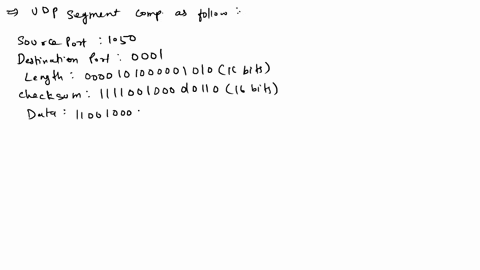 ⇒ UDP segment comp. as follow :-
Source Port : 1050
Destination Port : 0001
Length : 0000101000001010 (16 bits)
Checksum : 1111001000 d0110 (16 bits)
Data : 11001000 .